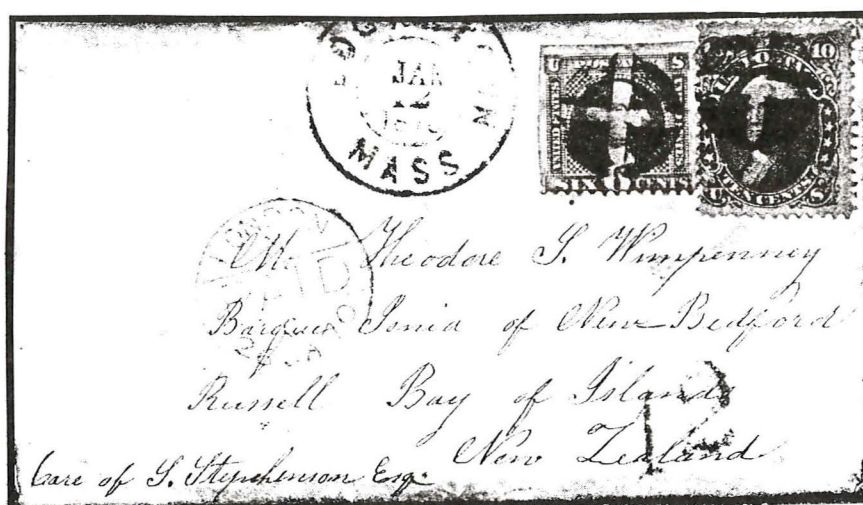 JAN
12
MASS
U S
SIX CENTS
10
TEN CENTS
U S
LONDON
PAID
Mr Theodore S. Wimpenney
Barque Ionia of New Bedford
Russell Bay of Islands
New Zealand
Care of S. Stephenson Esq